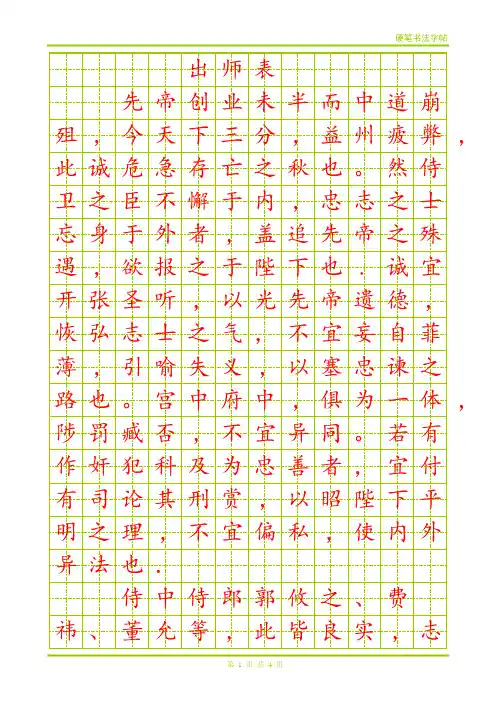 硬笔书法字帖
出师表
先帝创业未半而中道崩
殂,今天下三分,益州疲弊,
此诚危急存亡之秋也。然侍
卫之臣不懈于内,忠志之士
忘身于外者,盖追先帝之殊
遇,欲报之于陛下也.诚宜
开张圣听,以光先帝遗德,
恢弘志士之气,不宜妄自菲
薄,引喻失义,以塞忠谏之
路也。宫中府中,俱为一体,
陟罚臧否,不宜异同。若有
作奸犯科及为忠善者,宜付
有司论其刑赏,以昭陛下平
明之理,不宜偏私,使内外
异法也.
侍中侍郎郭攸之、费
祎、董允等,此皆良实,志
第 1 页 共 4 页